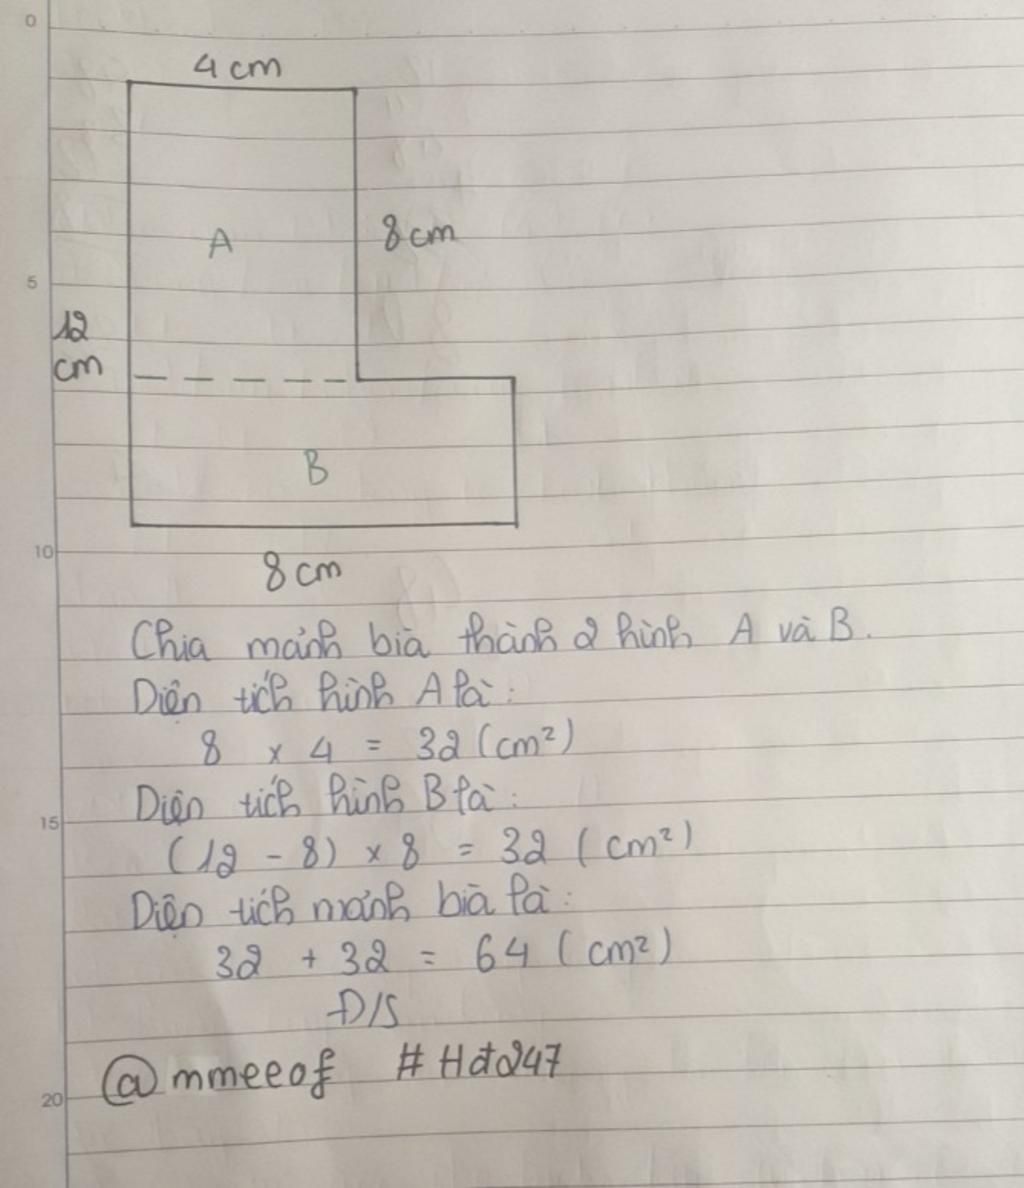 0
4 cm
A
8 cm
5
12
cm
B
10
8 cm
Chia mảnh bìa thành 2 hình A và B.
Diện tích hình A là:
8 x 4 = 32 (cm²)
Diện tích hình B là:
15
(12 - 8) x 8 = 32 (cm²)
Diện tích mảnh bìa là:
32 + 32 = 64 (cm²)
Đ/S
@mmeeof #Hđ247
20